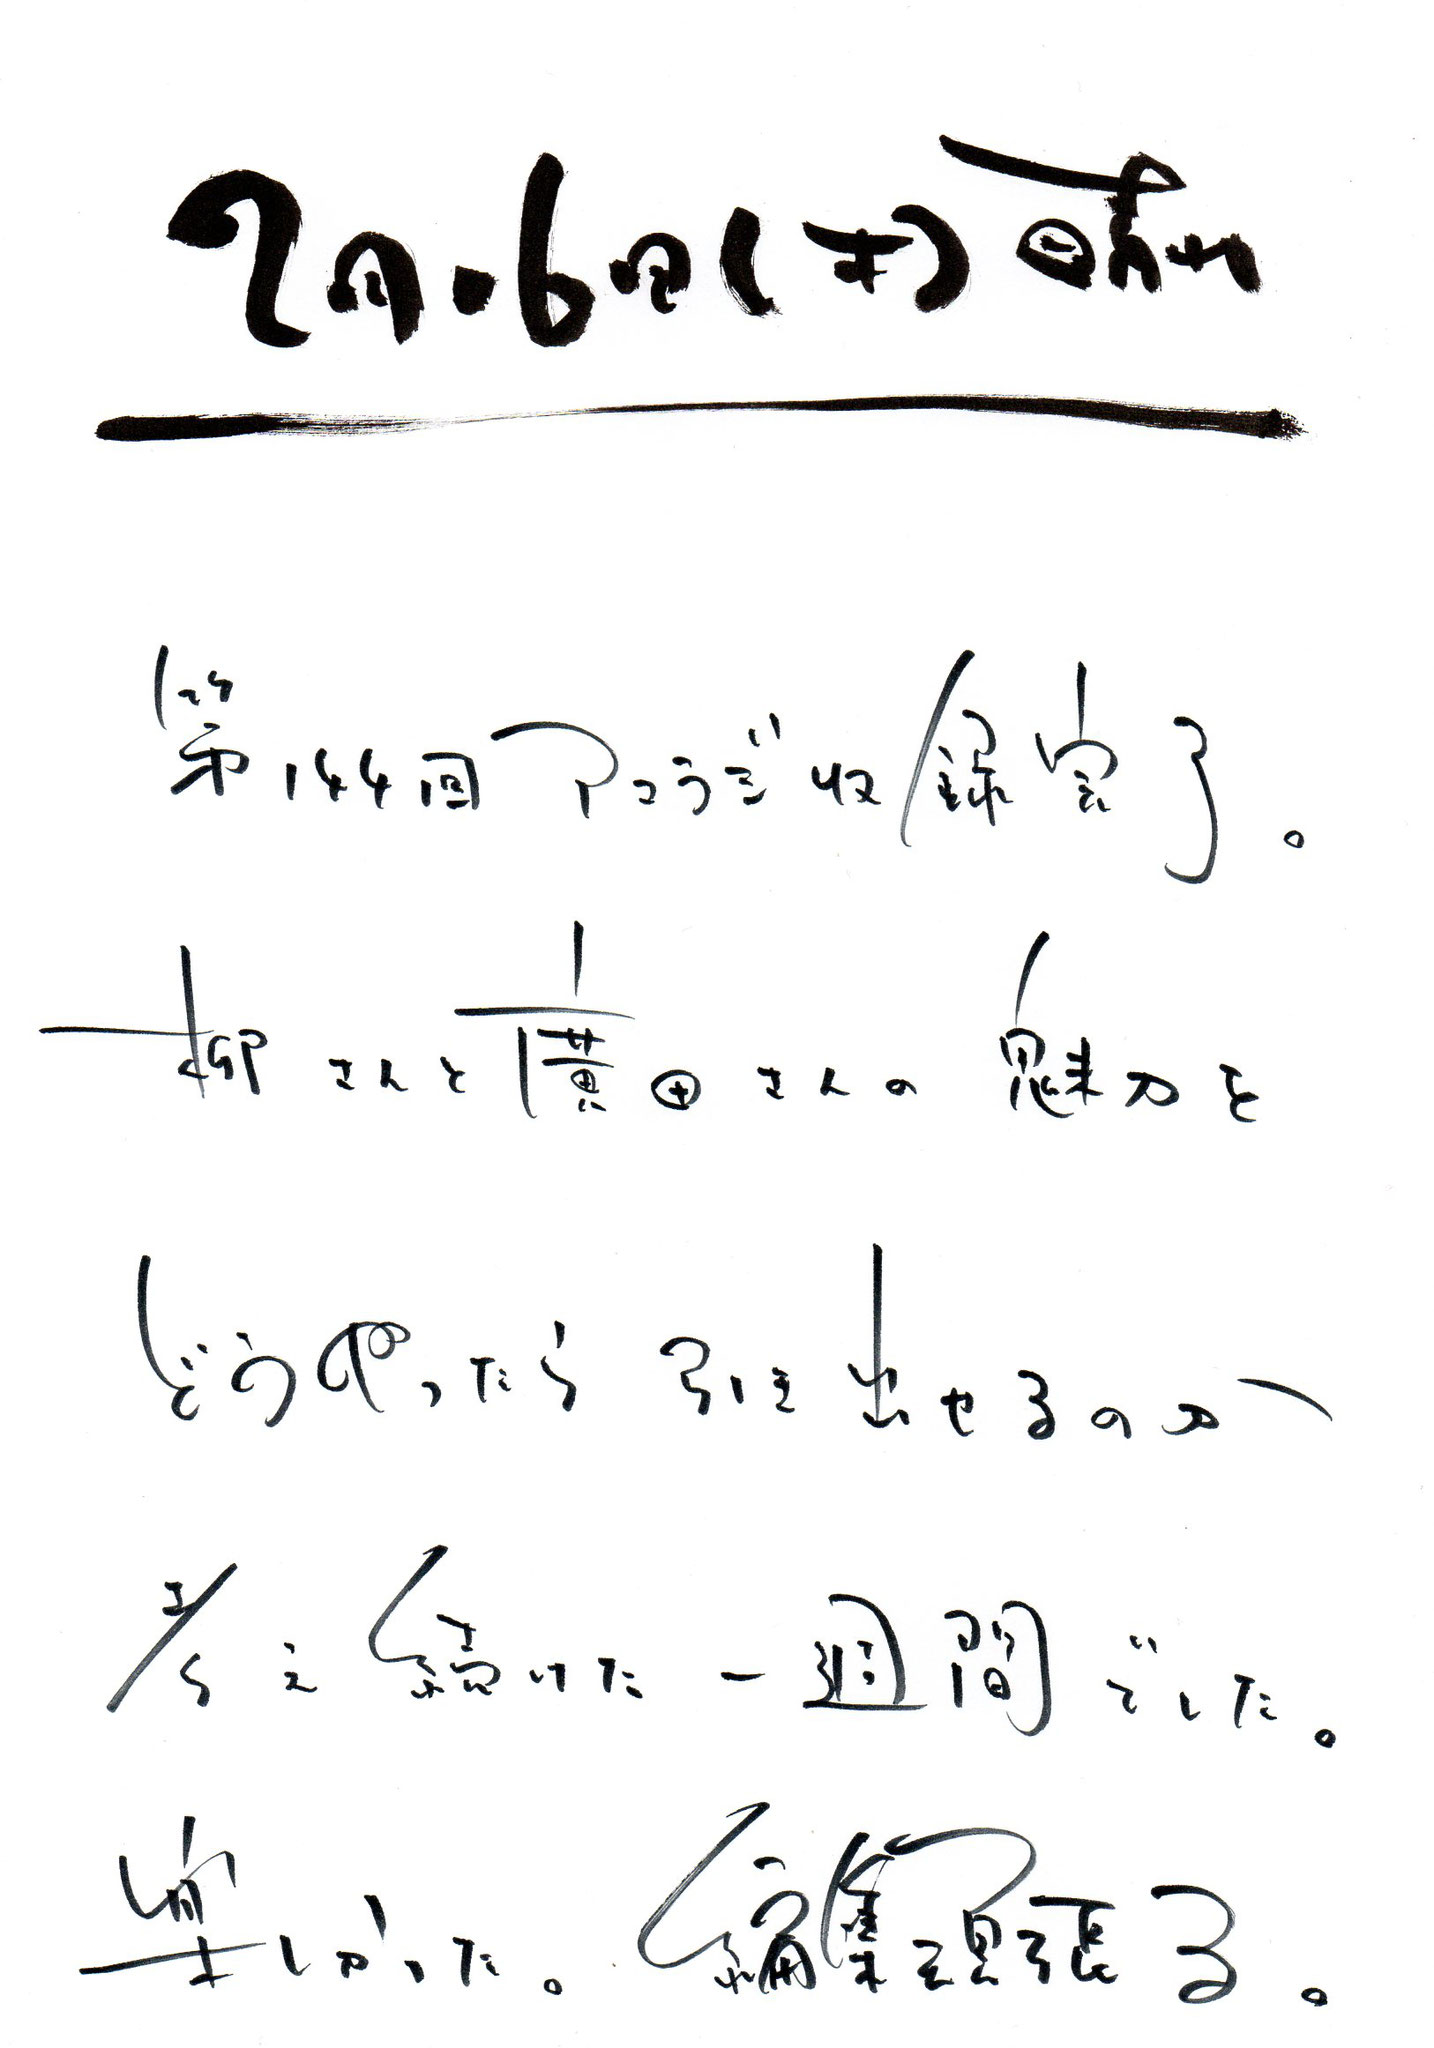 2月.6日(木)晴れ
第144回アコラジ収録完了。
柳さんと横田さんの魅力を
どうやったら引き出せるのか
考え続けた一週間でした。
楽しかった。編集頑張る。